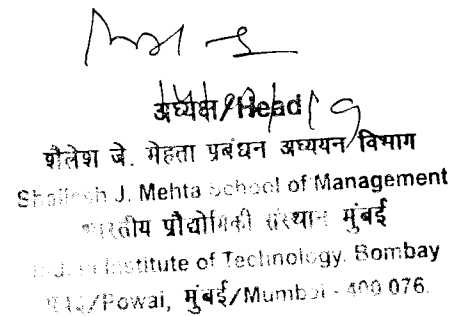 अध्यक्ष/Head
शैलेश जे. मेहता प्रबंधन अध्ययन विभाग
Shailesh J. Mehta School of Management
भारतीय प्रौद्योगिकी संस्थान मुंबई
Indian Institute of Technology, Bombay
पवई/Powai, मुंबई/Mumbai - 400 076.